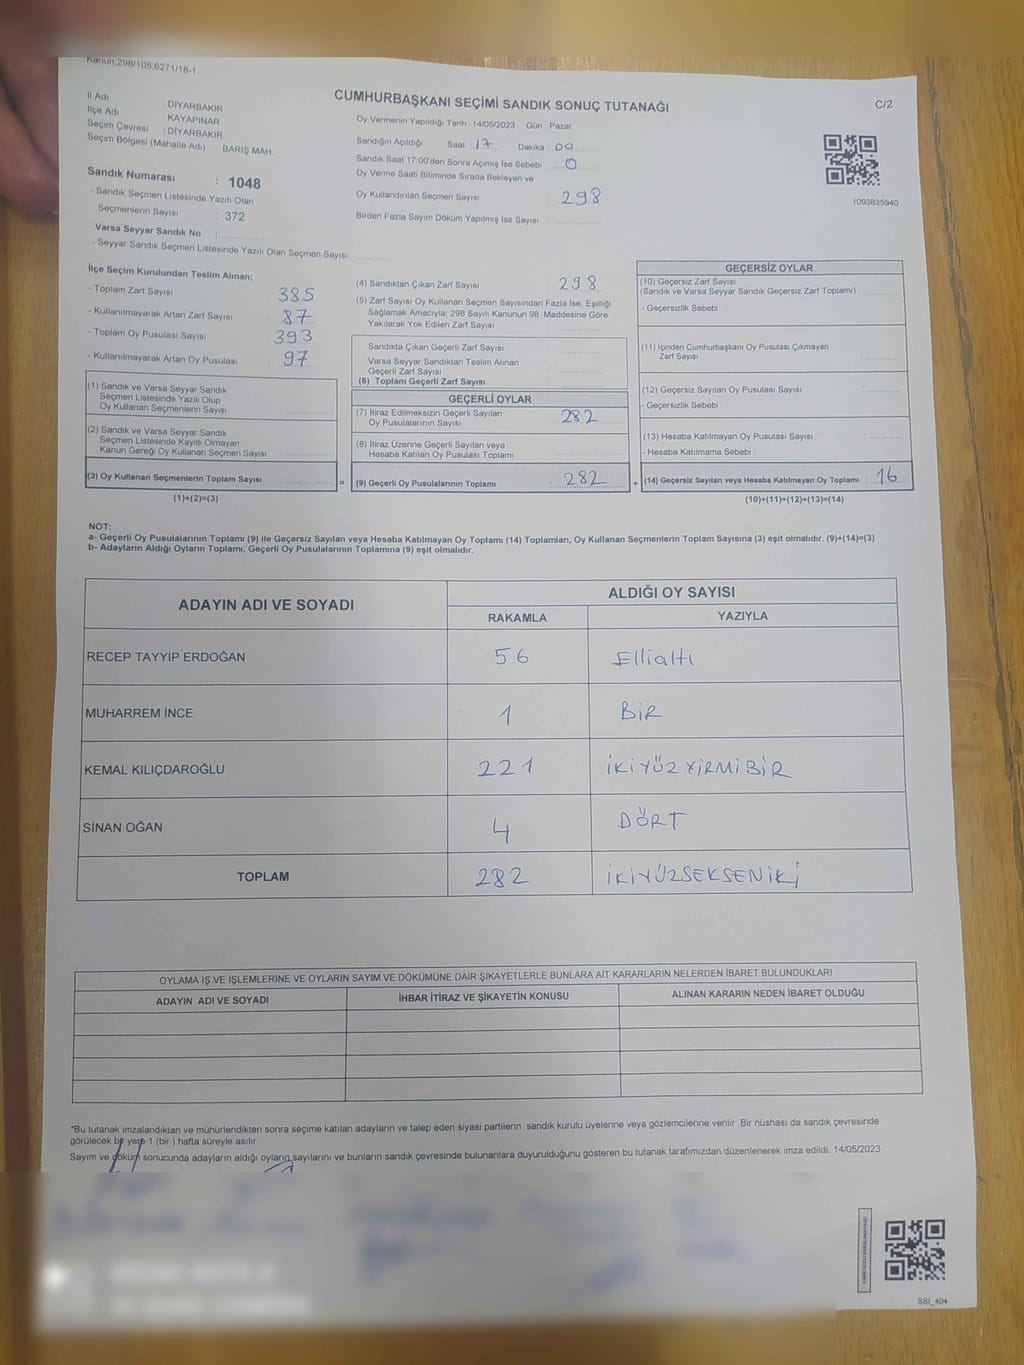 Kanun:298/105,6271/18-1
CUMHURBAŞKANI SEÇİMİ SANDIK SONUÇ TUTANAĞI
C/2
İl Adı : DİYARBAKIR
İlçe Adı : KAYAPINAR
Seçim Çevresi : DİYARBAKIR
Seçim Bölgesi (Mahalle Adı) : BARIŞ MAH
Sandık Numarası : 1048
- Sandık Seçmen Listesinde Yazılı Olan
Seçmenlerin Sayısı : 372
Varsa Seyyar Sandık No :
- Seyyar Sandık Seçmen Listesinde Yazılı Olan Seçmen Sayısı
Oy Vermenin Yapıldığı Tarih : 14/05/2023 Gün : Pazar
Sandığın Açıldığı Saat : 17 Dakika : 00
Sandık Saat 17:00'den Sonra Açılmış İse Sebebi : 0
Oy Verme Saati Bitiminde Sırada Bekleyen ve
Oy Kullandırılan Seçmen Sayısı 298
Birden Fazla Sayım Döküm Yapılmış İse Sayısı
1093835940
İlçe Seçim Kurulundan Teslim Alınan;
- Toplam Zarf Sayısı : 385
- Kullanılmayarak Artan Zarf Sayısı : 87
- Toplam Oy Pusulası Sayısı : 393
- Kullanılmayarak Artan Oy Pusulası : 97
(1) Sandık ve Varsa Seyyar Sandık
Seçmen Listesinde Yazılı Olup
Oy Kullanan Seçmenlerin Sayısı
(2) Sandık ve Varsa Seyyar Sandık
Seçmen Listesinde Kayıtlı Olmayan
Kanun Gereği Oy Kullanan Seçmen Sayısı
(3) Oy Kullanan Seçmenlerin Toplam Sayısı
(1)+(2)=(3)
=
(4) Sandıktan Çıkan Zarf Sayısı : 298
(5) Zarf Sayısı Oy Kullanan Seçmen Sayısından Fazla İse, Eşitliği
Sağlamak Amacıyla; 298 Sayılı Kanunun 98. Maddesine Göre
Yakılarak Yok Edilen Zarf Sayısı
Sandıkta Çıkan Geçerli Zarf Sayısı
Varsa Seyyar Sandıktan Teslim Alınan
Geçerli Zarf Sayısı
(6) Toplam Geçerli Zarf Sayısı
GEÇERLİ OYLAR
(7) İtiraz Edilmeksizin Geçerli Sayılan
Oy Pusulalarının Sayısı : 282
(8) İtiraz Üzerine Geçerli Sayılan veya
Hesaba Katılan Oy Pusulası Toplamı
(9) Geçerli Oy Pusulalarının Toplamı : 282
+
GEÇERSİZ OYLAR
(10) Geçersiz Zarf Sayısı
(Sandık ve Varsa Seyyar Sandık Geçersiz Zarf Toplamı)
- Geçersizlik Sebebi :
(11) İçinden Cumhurbaşkanı Oy Pusulası Çıkmayan
Zarf Sayısı
(12) Geçersiz Sayılan Oy Pusulası Sayısı
- Geçersizlik Sebebi :
(13) Hesaba Katılmayan Oy Pusulası Sayısı
- Hesaba Katılmama Sebebi
(14) Geçersiz Sayılan veya Hesaba Katılmayan Oy Toplamı : 16
(10)+(11)+(12)+(13)=(14)
NOT:
a- Geçerli Oy Pusulalarının Toplamı (9) ile Geçersiz Sayılan veya Hesaba Katılmayan Oy Toplamı (14) Toplamları, Oy Kullanan Seçmenlerin Toplam Sayısına (3) eşit olmalıdır. (9)+(14)=(3)
b- Adayların Aldığı Oyların Toplamı, Geçerli Oy Pusulalarının Toplamına (9) eşit olmalıdır.
ADAYIN ADI VE SOYADI ALDIĞI OY SAYISI
RAKAMLA YAZIYLA
RECEP TAYYİP ERDOĞAN 56 Ellialtı
MUHARREM İNCE 1 BİR
KEMAL KILIÇDAROĞLU 221 İKİYÜZYİRMİBİR
SİNAN OĞAN 4 DÖRT
TOPLAM 282 İKİYÜZSEKSENİKİ
OYLAMA İŞ VE İŞLEMLERİNE VE OYLARIN SAYIM VE DÖKÜMÜNE DAİR ŞİKAYETLERLE BUNLARA AİT KARARLARIN NELERDEN İBARET BULUNDUKLARI
ADAYIN ADI VE SOYADI İHBAR İTİRAZ VE ŞİKAYETİN KONUSU ALINAN KARARIN NEDEN İBARET OLDUĞU
*Bu tutanak imzalandıktan ve mühürlendikten sonra seçime katılan adayların ve talep eden siyasi partilerin sandık kurulu üyelerine veya gözlemcilerine verilir. Bir nüshası da sandık çevresinde
görülecek bir yere 1 (bir ) hafta süreyle asılır.
Sayım ve döküm sonucunda adayların aldığı oyların sayılarını ve bunların sandık çevresinde bulunanlara duyurulduğunu gösteren bu tutanak tarafımızdan düzenlenerek imza edildi. 14/05/2023
SSI_404